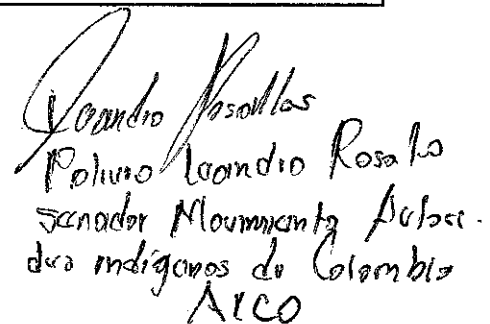 Leandro Rosallos
Polivio Leandro Rosales
Senador Movimiento Autori-
des indígenas de Colombia
AICO